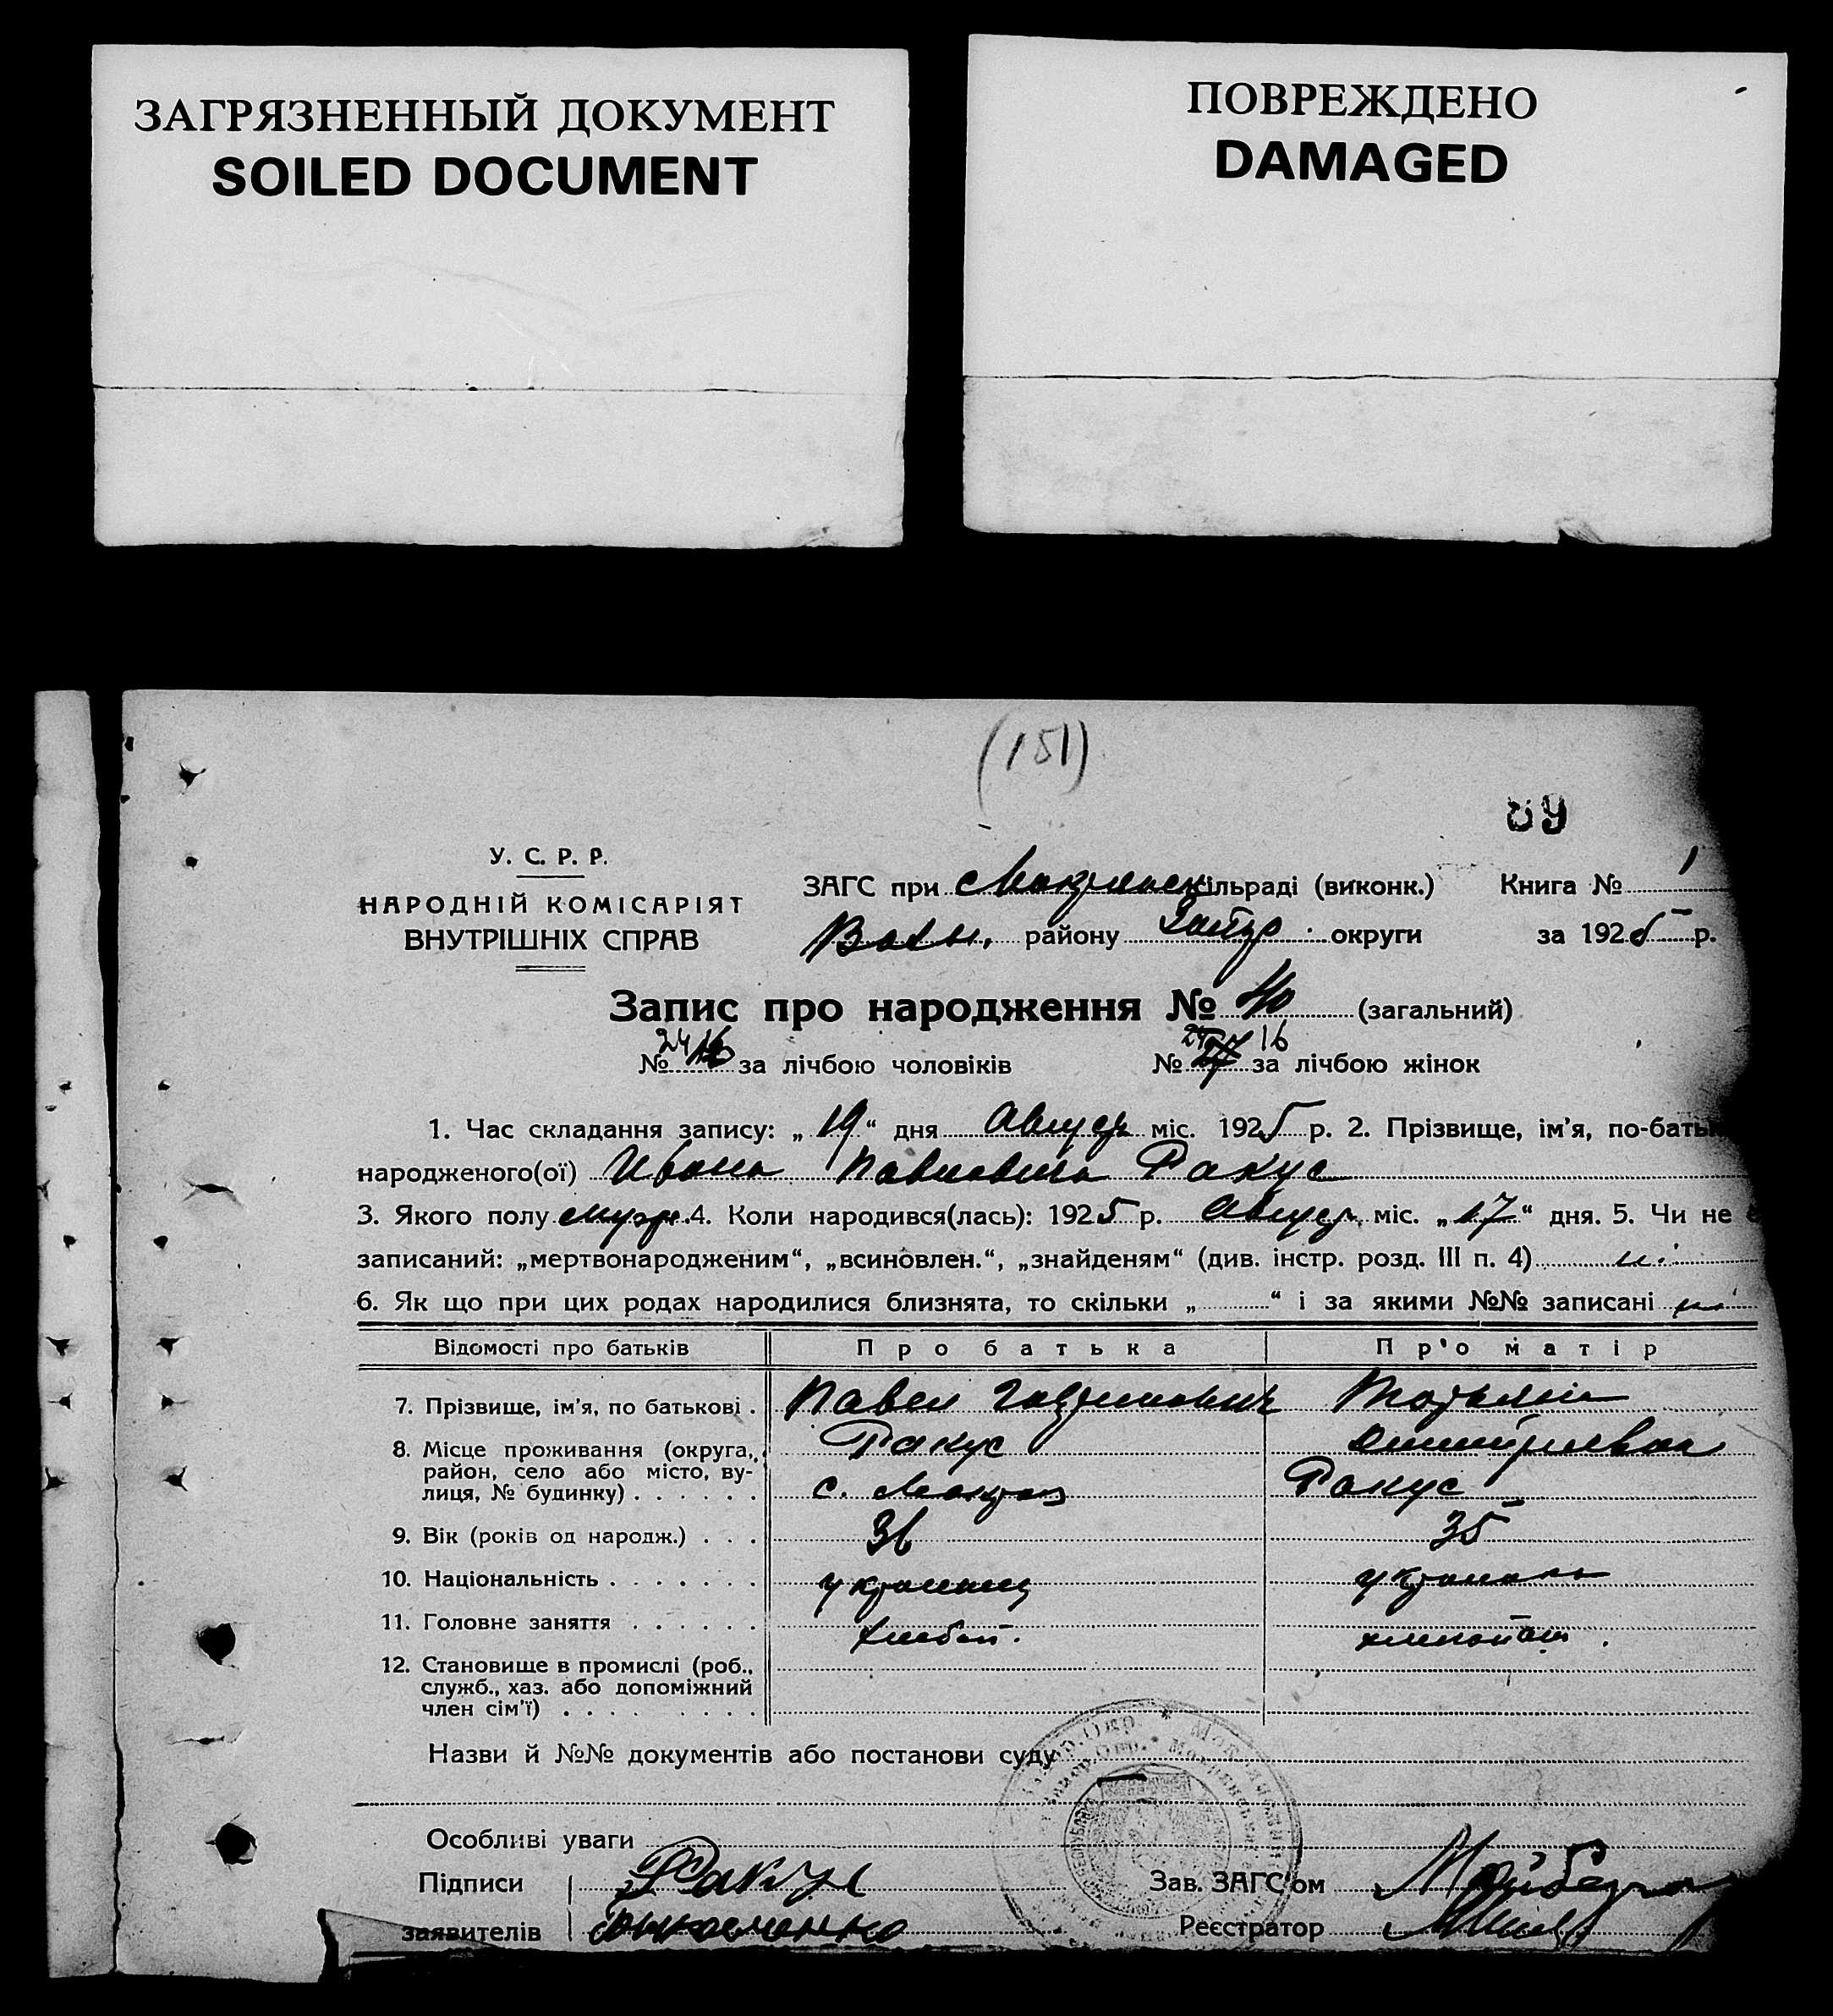 ЗАГРЯЗНЕННЫЙ ДОКУМЕНТ
SOILED DOCUMENT
ПОВРЕЖДЕНО
DAMAGED
(151)
89
У. С. Р. Р.
НАРОДНІЙ КОМІСАРІЯТ
ВНУТРІШНІХ СПРАВ
ЗАГС при сільраді (виконк.) Книга № 1
району округи за 1925 р.
Запис про народження № 40 (загальний)
№ 24 за лічбою чоловіків № 16 за лічбою жінок
1. Час складання запису: „19“ дня Август міс. 1925 р. 2. Прізвище, ім’я, по-батьк
народженого(ої) Ивана Павловича Ракус
3. Якого полу муж. 4. Коли народився(лась): 1925 р. Август міс. „17“ дня. 5. Чи не є
записаний: „мертвонародженим“, „всиновлен.“, „знайденям“ (див. інстр. розд. III п. 4) ні
6. Як що при цих родах народилися близнята, то скільки „ “ і за якими №№ записані ні
Відомості про батьків Про батька Про матір
7. Прізвище, ім’я, по батькові . Павел Татьяна
8. Місце проживання (округа, Ракус Дмитриевна
район, село або місто, ву-
лиця, № будинку) . . . . . . с. Ракус
9. Вік (років од народж.) . . . 36 35
10. Національність . . . . . . . украинец украинка
11. Головне заняття . . . . . . хлебоп.
12. Становище в промислі (роб.,
служб., хаз. або допоміжний
член сім’ї) . . . . . . . . .
Назви й №№ документів або постанови суду —
Особливі уваги
Підписи Ракус Зав. ЗАГС’ом
заявителів Реєстратор